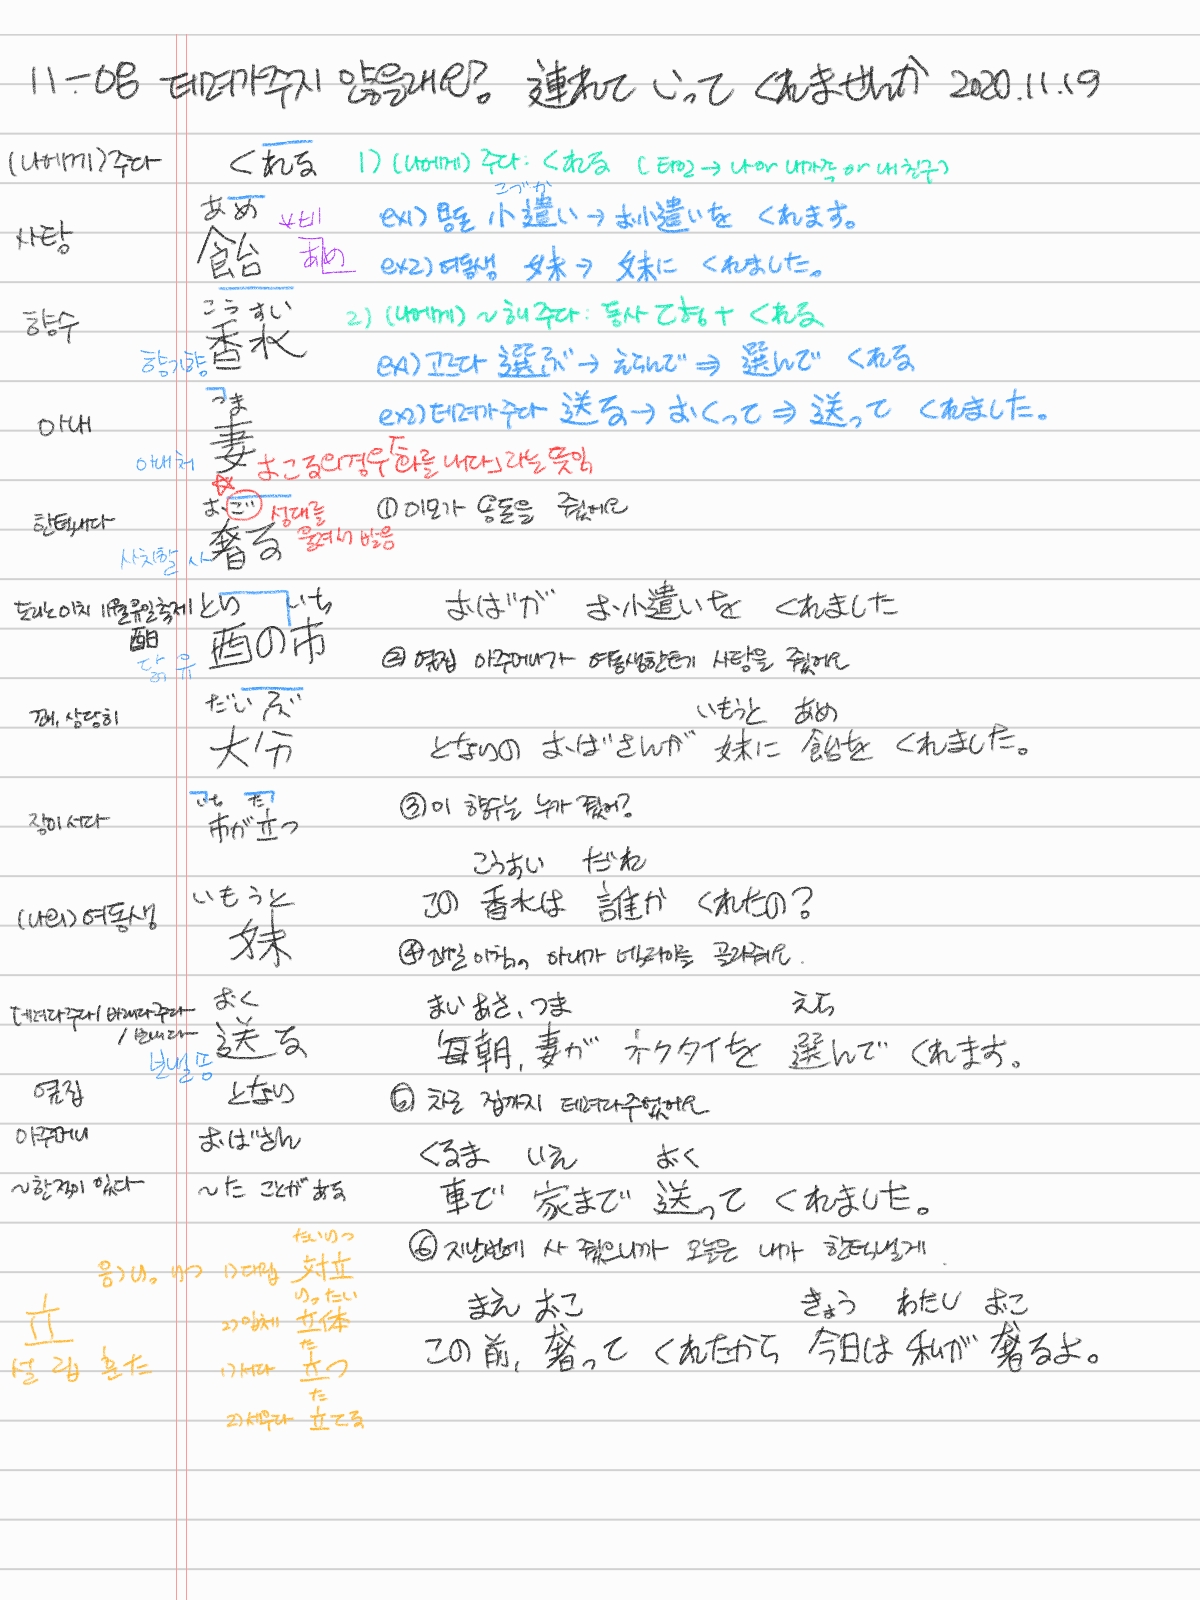 11-08 데려가주지 않을래요? 連れて いって くれませんか 2020.11.19
(나에게)주다 くれる 1) (나에게) 주다: くれる (타인→나 or 내가족 or 내친구)
あめ こづか
사탕 飴 *비 あめ ex1) 용돈 小遣い → お小遣いを くれます。
ex2) 여동생 妹 → 妹に くれました。
こうすい
향수 香水 2) (나에게) ~해주다: 동사 て형 + くれる
향기향 ex1) 고르다 選ぶ → えらんで ⇒ 選んで くれる
つま
아내 妻 ex2) 데려가주다 送る → おくって ⇒ 送って くれました。
아내 처 おこる의 경우 「화를 내다」라는 뜻임
おご 성대를
한턱내다 奢る 울려서 발음 ① 이모가 용돈을 줬어요
사치할 사
とり いち
토리노이치 11월유일축제 酉の市 おばが お小遣いを くれました
닭 유 ② 옆집 아주머니가 여동생한테 사탕을 줬어요
だいぶ いもうと あめ
꽤, 상당히 大分 となりの おばさんが 妹に 飴を くれました。
いち た
장이서다 市が立つ ③ 이 향수는 누가 줬어?
こうすい だれ
いもうと この 香水は 誰が くれたの?
(나의)여동생 妹 ④ 매일 아침, 아내가 넥타이를 골라줘요.
おく まいあさ、つま えら
데려다주다/바래다주다 /보내다 送る 毎朝, 妻が ネクタイを 選んで くれます。
보낼 송
옆집 となり ⑤ 차로 집까지 데려다주었어요
아주머니 おばさん くるま いえ おく
~한적이 있다 ~た ことがある 車で 家まで 送って くれました。
たいりつ ⑥ 지난번에 사 줬으니까 오늘은 내가 한턱낼게.
음) り。りつ 1)대립 対立
りったい まえ おこ きょう わたし おこ
立 2)입체 立体
た この 前, 奢って くれたから 今日は 私が 奢るよ。
설 립 훈 た 1)서다 立つ
た
2)세우다 立てる